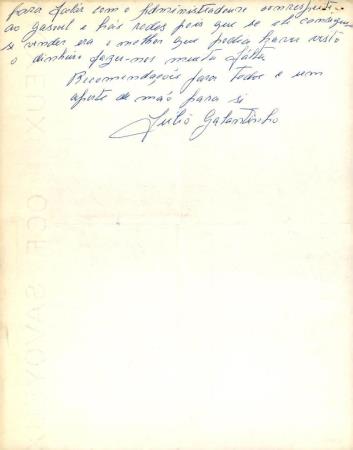 para falar com o Administradeure com respeito
ao gasoil e hás redes pois que se ele consegue
se vender era o melhor que podia haver visto
o dinheiro fazer-nos muita falta
Recomendações para todos e um
aperte de mão para si
Julio Galantinho